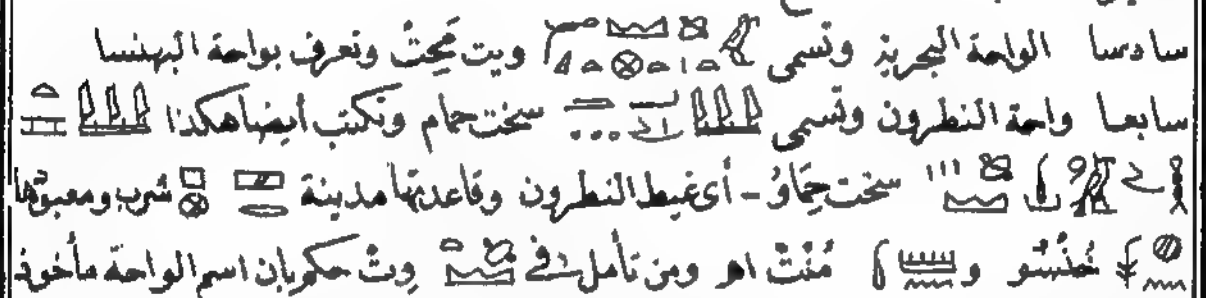 سادسا الواحة البحرية وتسمى ويت مَحِتْ وتعرف بواحة البهنسا
سابعا واحة النطرون وتسمى سخت حمام وتكتب أيضا هكذا
سخت حِمَاوُ - أى غيط النطرون وقاعدتها مدينة شرب ومعبودها
خُنْسُو و مُنْتْ اهر ومن تأمل فى وِتْ حكم بان اسم الواحة مأخوذ